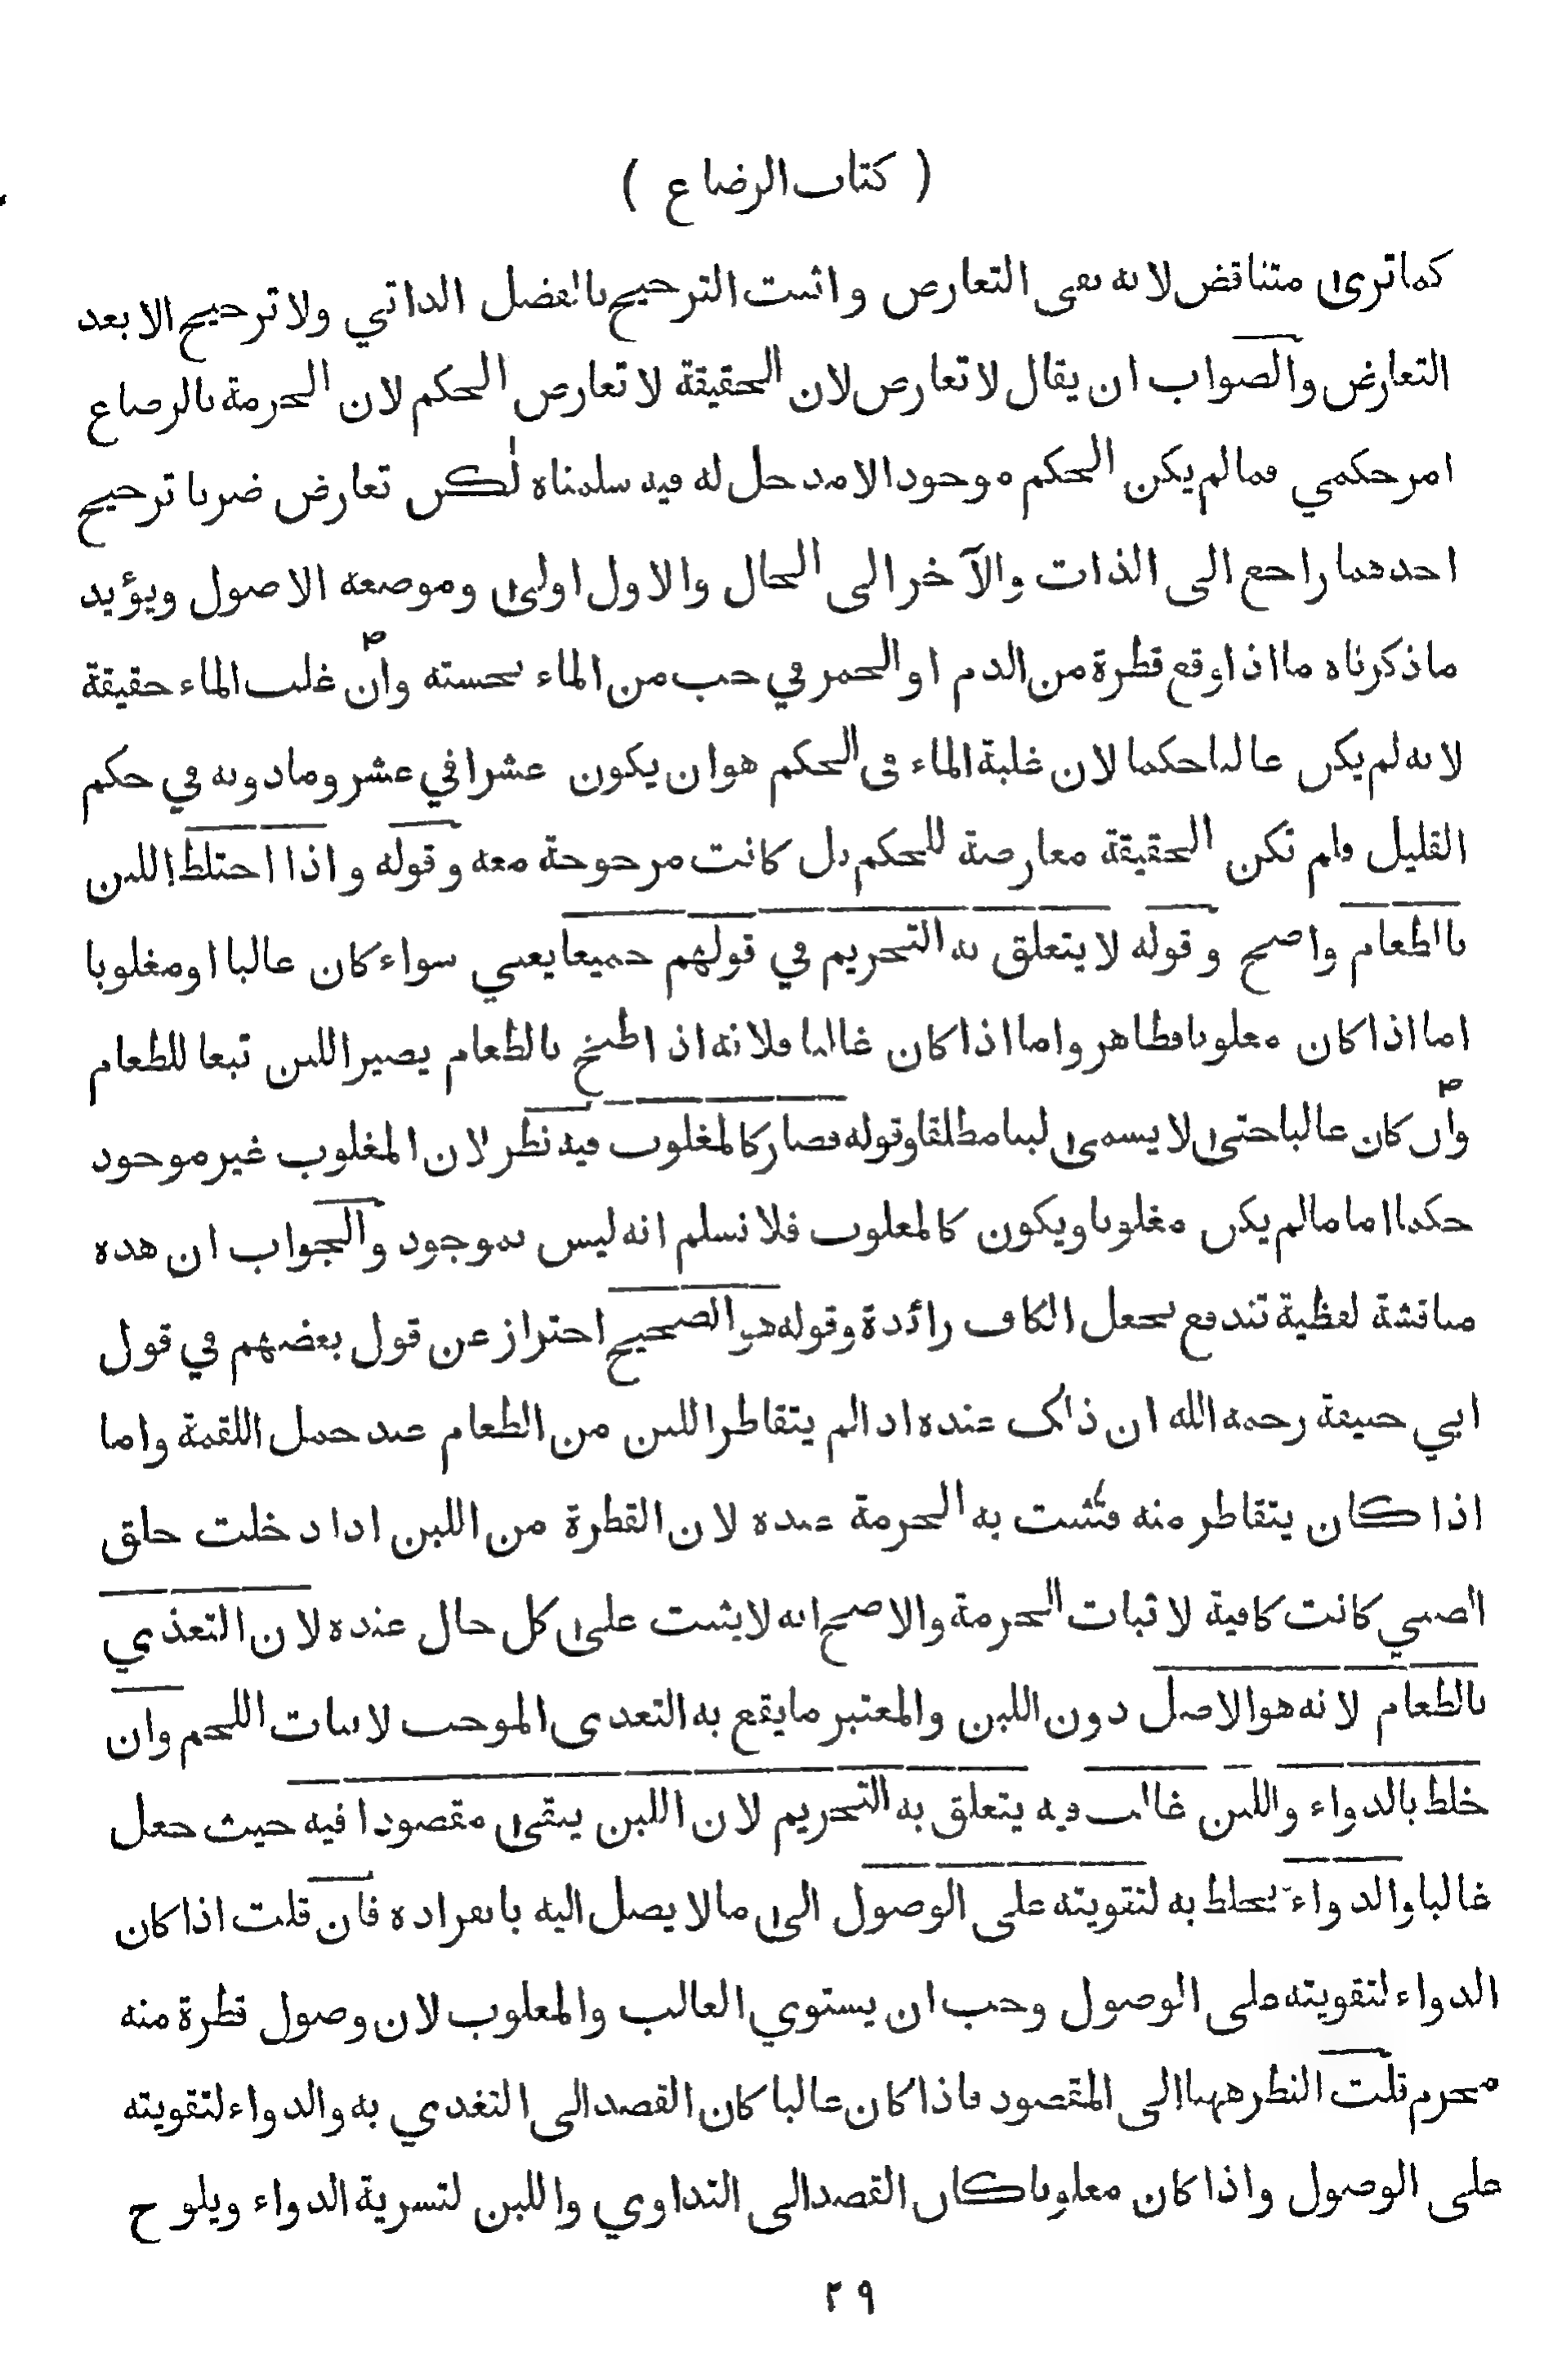 ( كتاب الرضاع )
كما ترى متناقض لانه نفى التعارض واثبت الترجيح بالفضل الذاتي ولا ترجيح الا بعد
التعارض والصواب ان يقال لا تعارض لان الحقيقة لا تعارض الحكم لان الحرمة بالرضاع
امر حكمي فما لم يكن الحكم موجودا لا مدخل له فيه سلمناه لكن تعارض ضربا ترجيح
احدهما راجع الى الذات والآخر الى الحال والاول اولى وموضعه الاصول ويؤيد
ما ذكرناه ما اذا وقع قطرة من الدم او الخمر في حب من الماء نجسته وان غلب الماء حقيقة
لانه لم يكن غالبا حكما لان غلبة الماء في الحكم هو ان يكون عشرا في عشر وما دونه في حكم
القليل فلم تكن الحقيقة معارضة للحكم بل كانت مرجوحة معه وقوله واذا اختلط اللبن
بالطعام واضح وقوله لا يتعلق به التحريم في قولهم جميعا يعني سواء كان غالبا او مغلوبا
اما اذا كان مغلوبا فظاهر واما اذا كان غالبا فلانه اذ اطبخ بالطعام يصير اللبن تبعا للطعام
وان كان غالبا حتى لا يسمى لبنا مطلقا وقوله فصار كالمغلوب فيه نظر لان المغلوب غير موجود
حكما اما ما لم يكن مغلوبا ويكون كالمغلوب فلا نسلم انه ليس بموجود والجواب ان هذه
مناقشة لفظية تندفع بجعل الكاف زائدة وقوله هو الصحيح احتراز عن قول بعضهم في قول
ابي حنيفة رحمه الله ان ذلك عنده اذ الم يتقاطر اللبن من الطعام عند حمل اللقمة واما
اذا كان يتقاطر منه فتثبت به الحرمة عنده لان القطرة من اللبن اذا دخلت حلق
الصبي كانت كافية لاثبات الحرمة والاصح انه لا يثبت على كل حال عنده لان التغذي
بالطعام لانه هو الاصل دون اللبن والمعتبر ما يقع به التغذى الموجب لانبات اللحم وان
خلط بالدواء واللبن غالب فيه يتعلق به التحريم لان اللبن يبقى مقصودا فيه حيث جعل
غالبا والدواء يخلط به لتقويته على الوصول الى ما لا يصل اليه بانفراده فان قلت اذا كان
الدواء لتقويته على الوصول وجب ان يستوي الغالب والمغلوب لان وصول قطرة منه
محرم قلت النظر ههنا الى المقصود فاذا كان غالبا كان القصد الى التغذي به والدواء لتقويته
على الوصول واذا كان مغلوبا كان القصد الى التداوي واللبن لتسرية الدواء ويلوح
٢٩